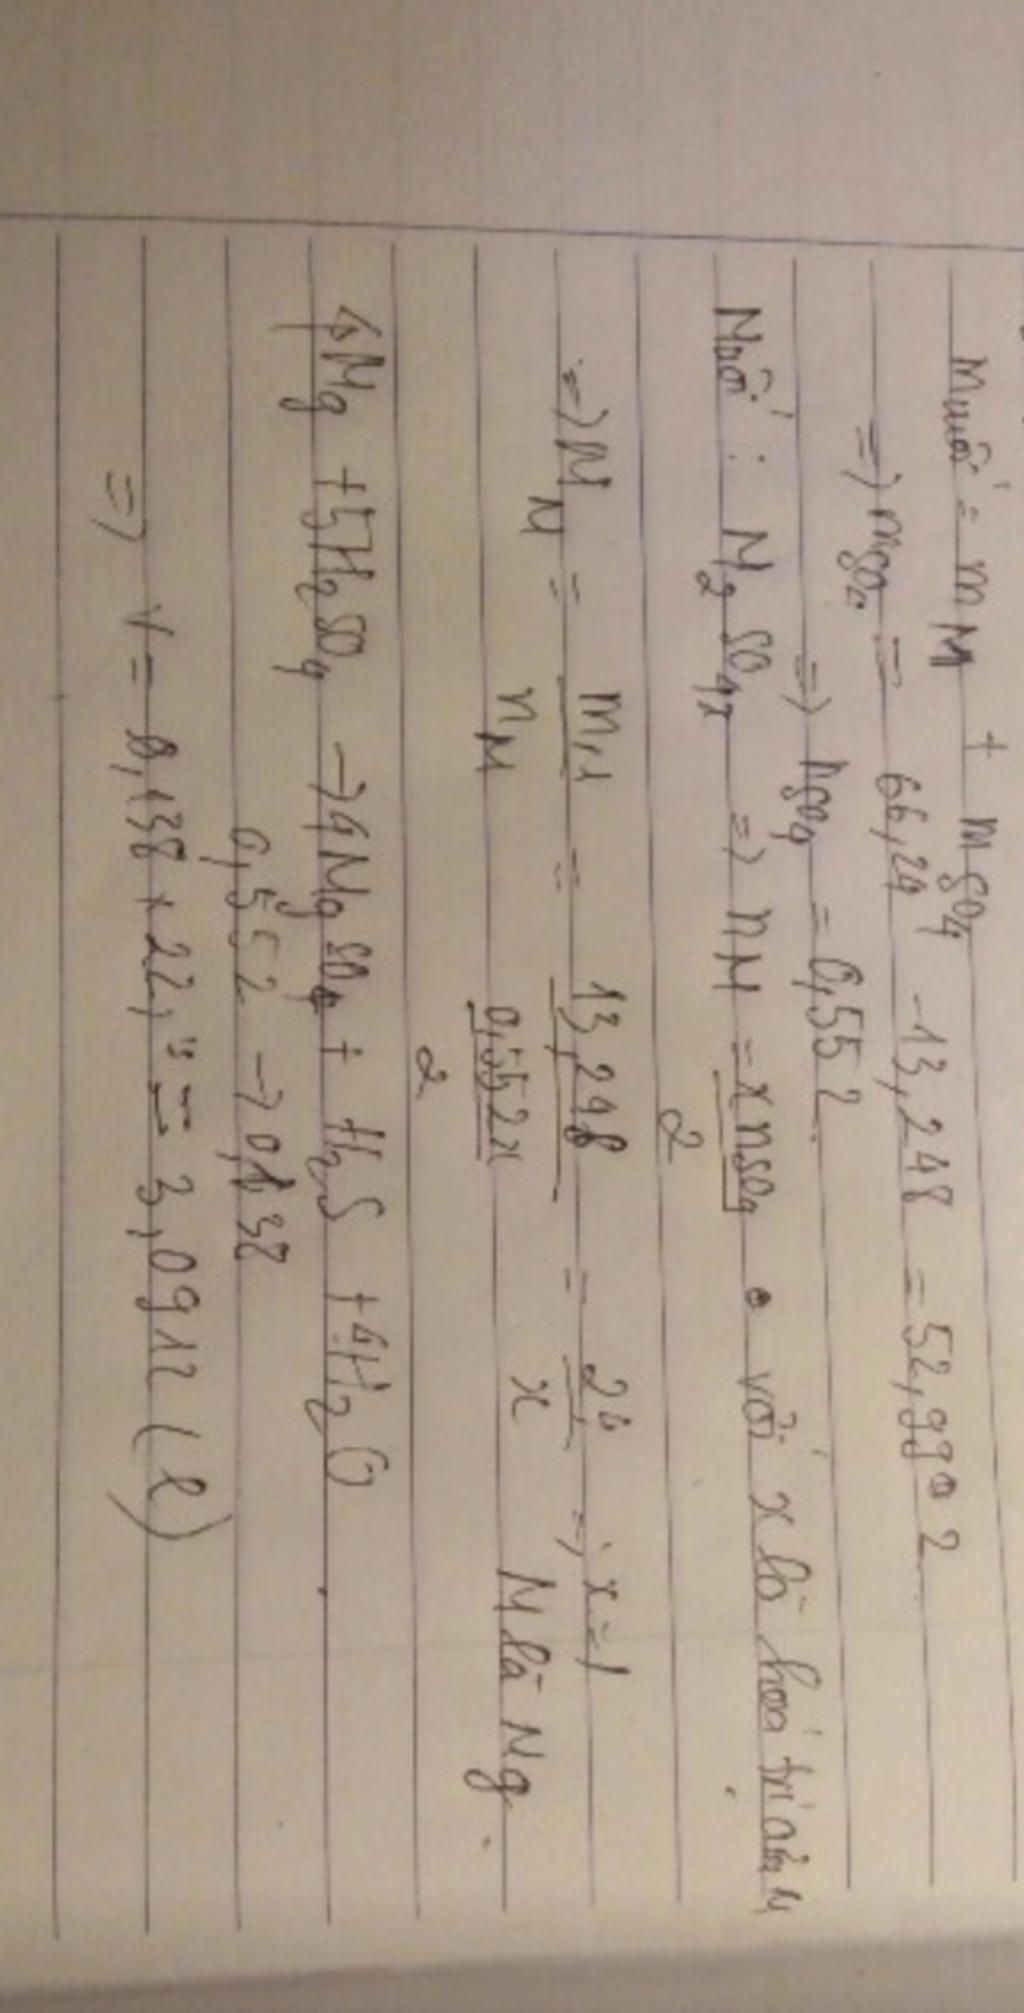 m muối = m M + m SO4
=> mSO4 = 66,24 - 13,248 = 52,992
=> nSO4 = 0,552
Muối : M2SO4x => nM = xnSO4 với x là hoá trị của M
2
=> MM = mM = 13,248 = 24 => x=1
nM 0,552x x M là Mg.
2
4Mg + 5H2SO4 → 4MgSO4 + H2S + 4H2O
0,552 → 0,138
=> V = 0,138 x 22,4 = 3,0912 (l)